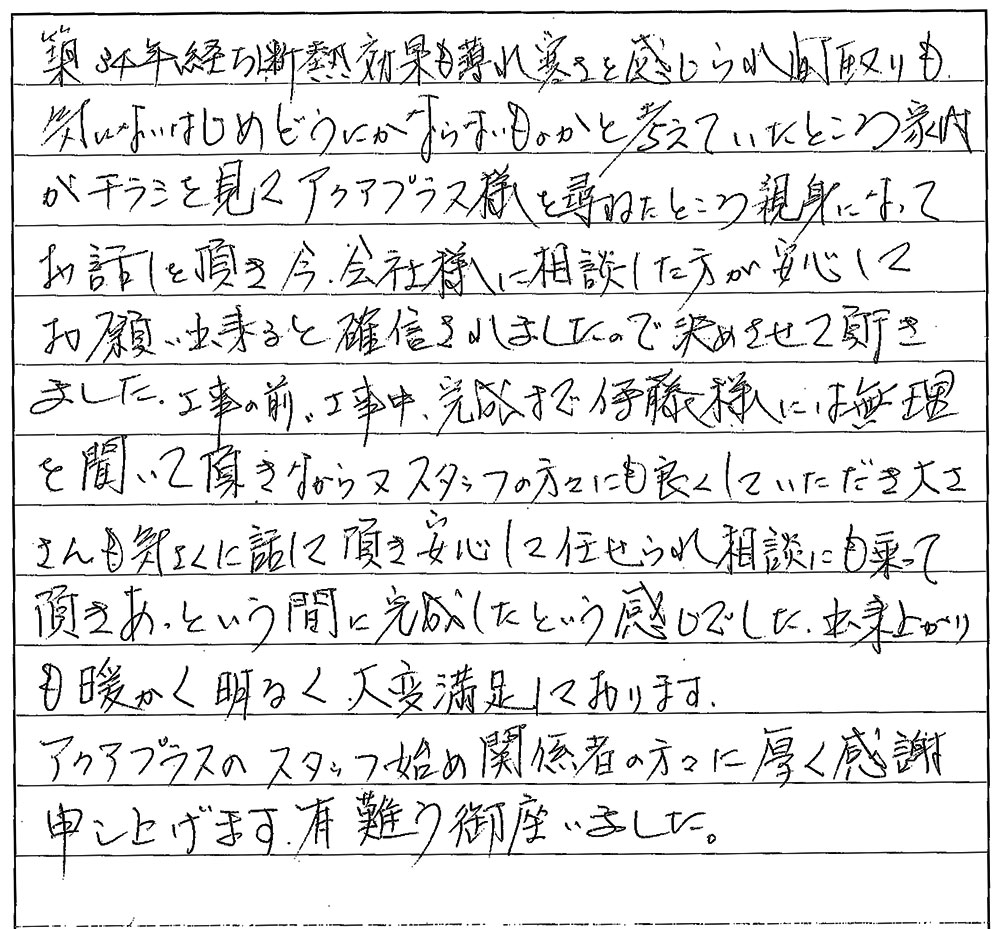 築34年経ち断熱効果も薄れ寒さを感じられ間取りも
気になりはじめどうにかならないものかと考えていたところ家内
がチラシを見てアクアプラス様を尋ねたところ親身になって
お話しを頂き今、会社様に相談した方が安心して
お願い出来ると確信されましたので決めさせて頂き
ました、工事の前、工事中、完成まで伊藤様には無理
を聞いて頂きながら又スタッフの方々にも良くしていただき大工
さんも気さくに話して頂き安心して任せられ相談にも乗って
頂きあっという間に完成したという感じでした、出来上がり
も暖かく明るく、大変満足しております。
アクアプラスのスタッフ始め関係者の方々に厚く感謝
申し上げます、有難う御座いました。